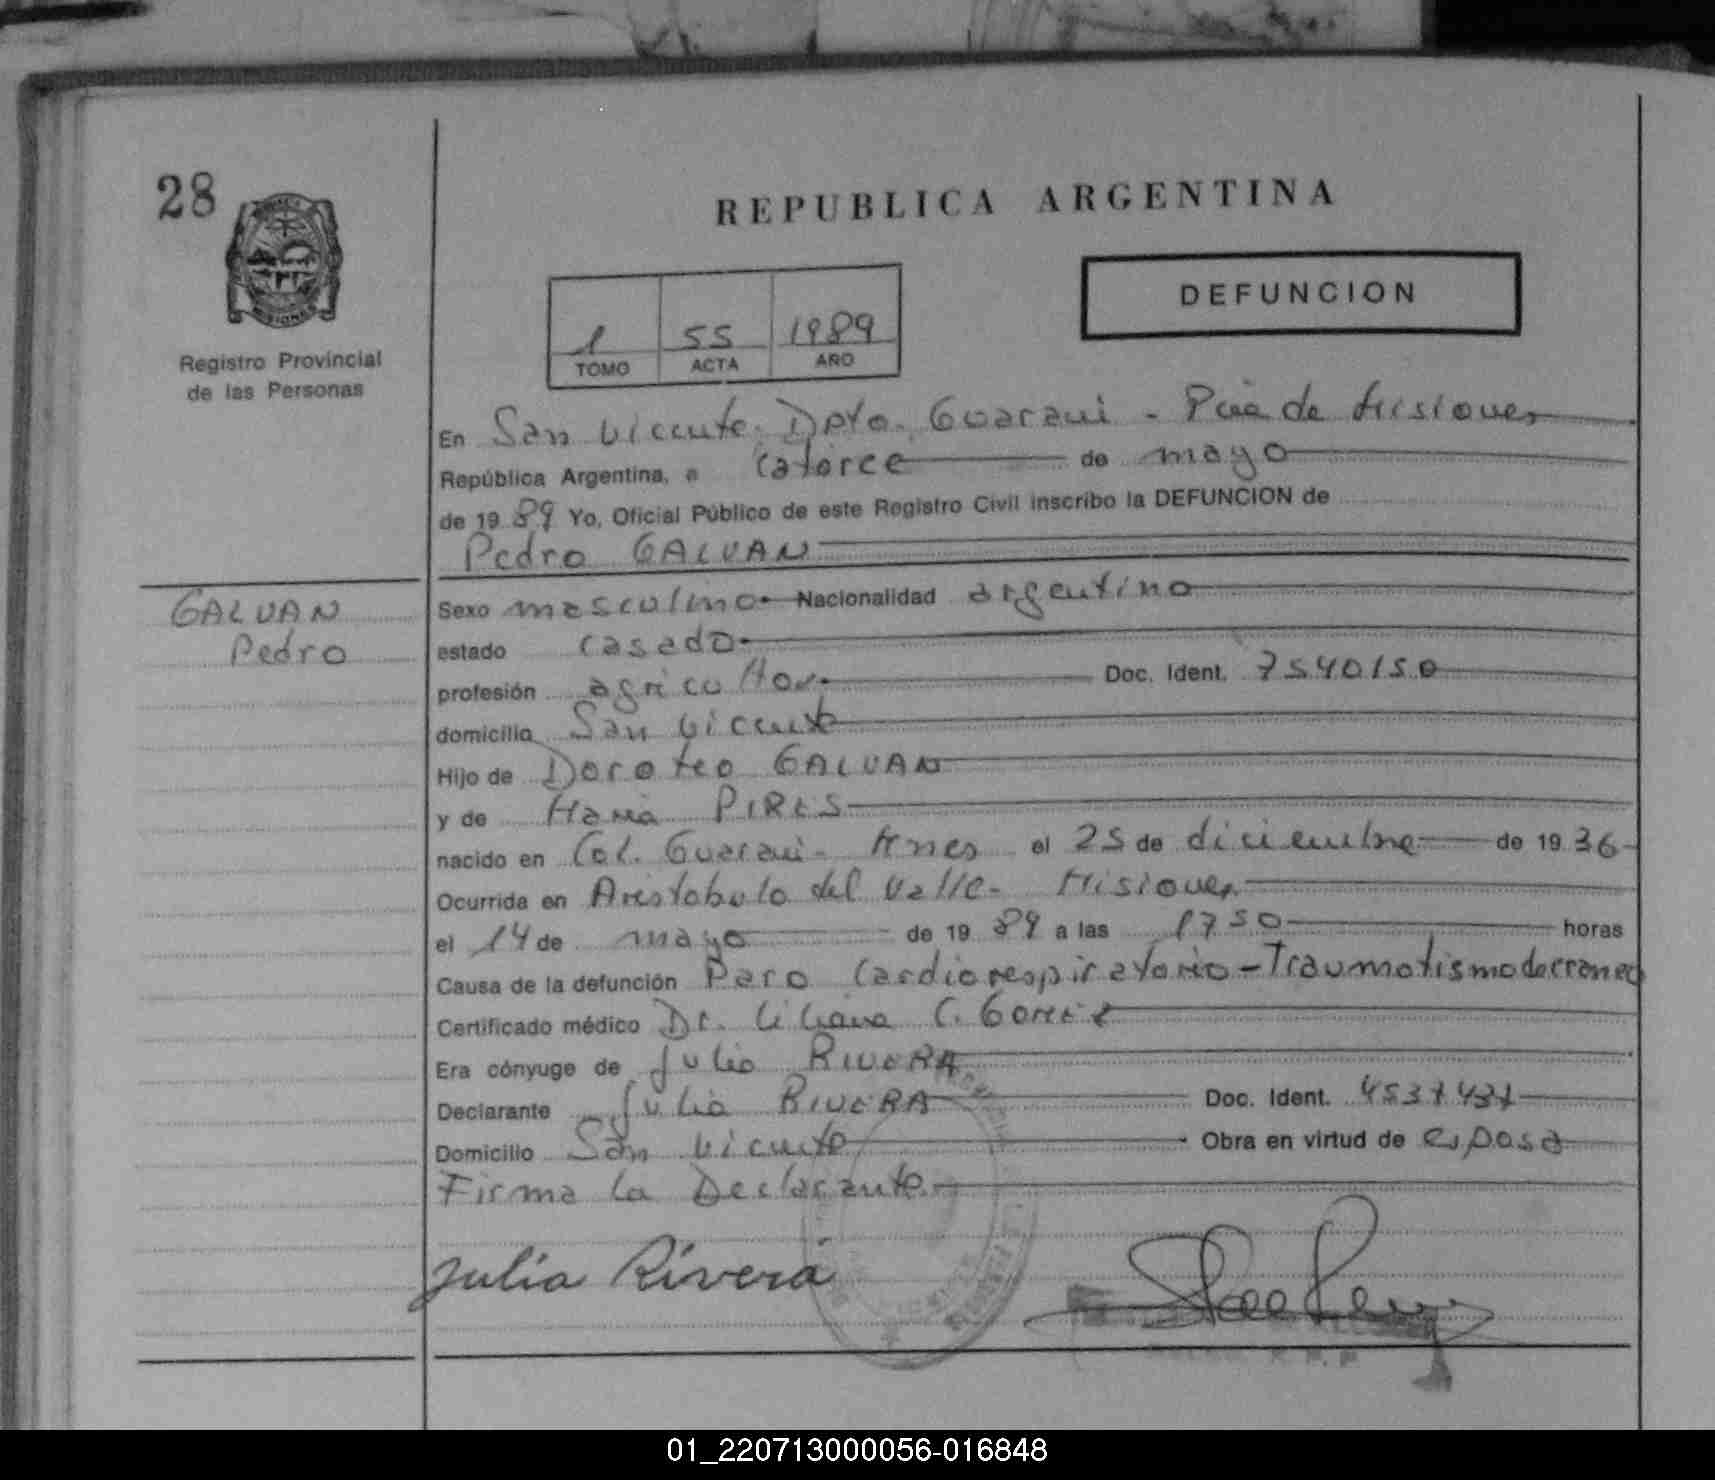 28
REPUBLICA ARGENTINA
MISIONES
DEFUNCION
1 55 1989
TOMO ACTA AÑO
Registro Provincial
de las Personas
En San Vicente. Dpto. Guarani - Pcia de Misiones
República Argentina, a catorce de mayo
de 1989 Yo, Oficial Público de este Registro Civil inscribo la DEFUNCION de
Pedro GALVAN
GALVAN
Pedro
Sexo masculino Nacionalidad argentino
estado casado
profesión agricultor Doc. Ident. 7540150
domicilio San Vicente
Hijo de Doroteo GALVAN
y de Maria PIRES
nacido en Col. Guarani - Mnes el 25 de diciembre de 1936
Ocurrida en Aristobulo del Valle - Misiones
el 14 de mayo de 1989 a las 1730 horas
Causa de la defunción Paro Cardiorespiratorio - Traumatismo de craneo
Certificado médico Dr. Liliana C.
Era cónyuge de Julia RIVERA
Declarante Julia RIVERA Doc. Ident. 4537437
Domicilio San Vicente Obra en virtud de esposa
Firma la Declarante
Julia Rivera
01_220713000056-016848